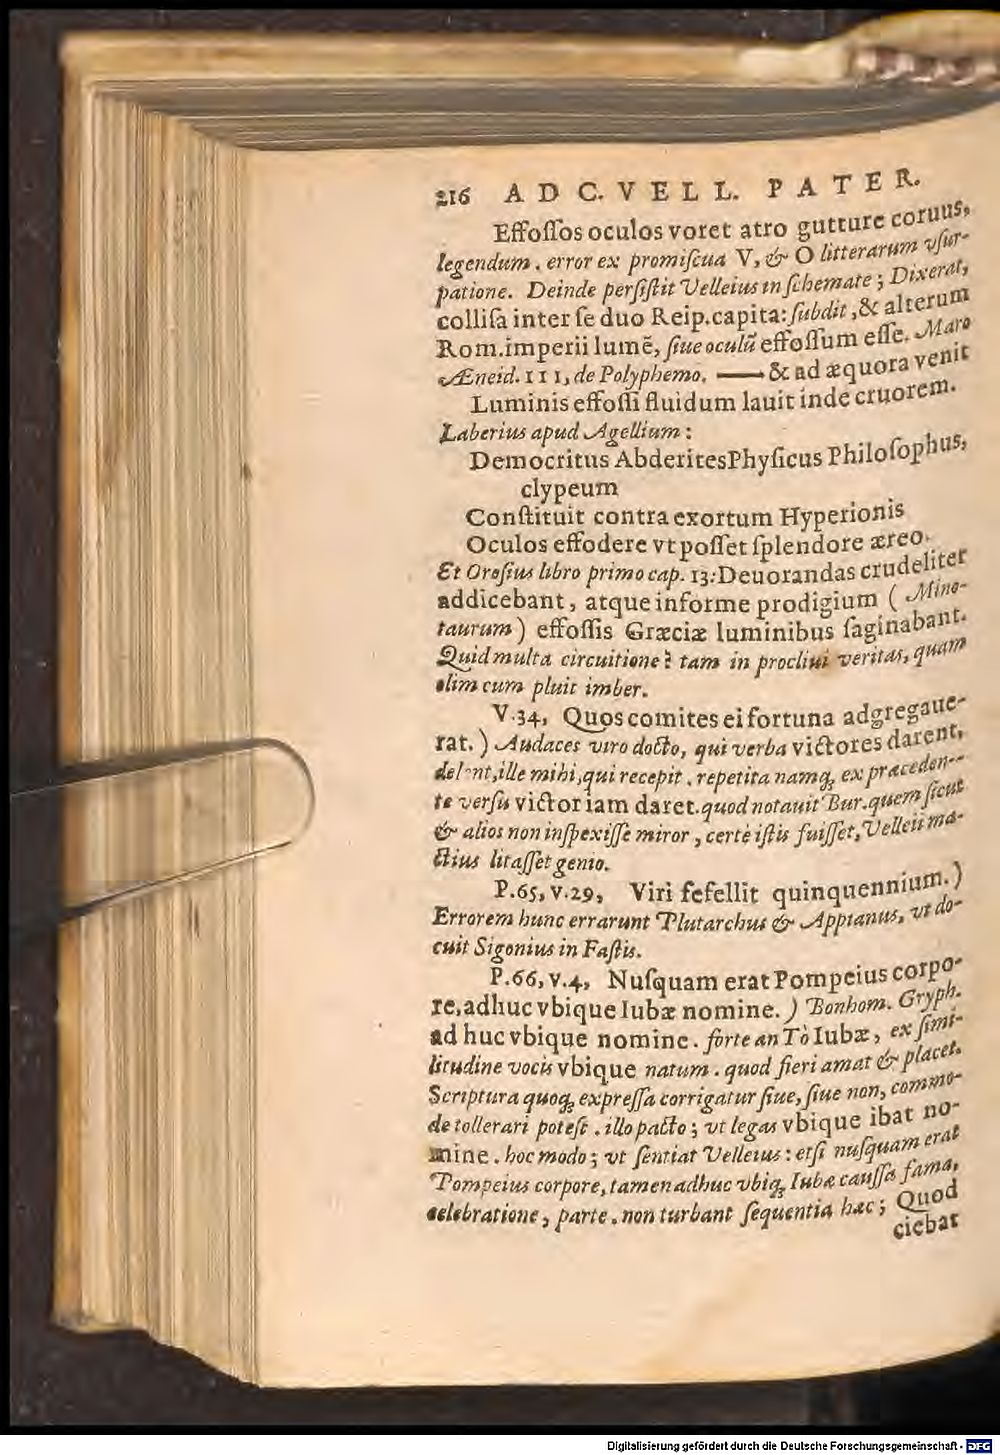 216 AD C. VELL. PATER.
Effoſſos oculos voret atro gutture coruus,
legendum. error ex promiſcua V, & O litterarum vſur-
patione. Deinde perſiſtit Velleius in ſchemate; Dixerat,
colliſa inter ſe duo Reip. capita: ſubdit, & alterum
Rom. imperii lumē, ſiue oculū effoſſum eſſe. Maro
Æneid. III, de Polyphemo. —— & ad æquora venit
Luminis effoſſi fluidum lauit inde cruorem.
Laberius apud Agellium:
Democritus Abderites Phyſicus Philoſophus,
clypeum
Conſtituit contra exortum Hyperionis
Oculos effodere vt poſſet ſplendore æreo.
Et Oroſius libro primo cap. 13: Deuorandas crudeliter
addicebant, atque informe prodigium ( Mino-
taurum ) effoſſis Græciæ luminibus ſaginabant.
Quid multa circuitione? tam in procliui veritas, quam
olim cum pluit imber.
V. 34, Quos comites ei fortuna adgregaue-
rat. ) Audaces viro docto, qui verba victores darent,
delent, ille mihi, qui recepit. repetita namq; ex præceden-
te verſu victoriam daret. quod notauit Bur. quem ſicut
& alios non inſpexiſſe miror, certè iſtis fuiſſet, Velleii ma-
ctius litaſſet genio.
P. 65, V. 29, Viri fefellit quinquennium. )
Errorem hunc errarunt Plutarchus & Appianus, vt do-
cuit Sigonius in Faſtis.
P. 66, v. 4, Nuſquam erat Pompeius corpo-
re, adhuc vbique Iubæ nomine. ) Bonhom. Gryph.
ad huc vbique nomine. forte an Tò Iubæ, ex ſimi-
litudine vocis vbique natum. quod fieri amat & placet.
Scriptura quoq; expreſſa corrigatur ſiue, ſiue non, commo-
de tollerari poteſt. illo pacto; vt legas vbique ibat no-
mine. hoc modo; vt ſentiat Velleius: etſi nuſquam erat
Pompeius corpore, tamen adhuc vbiq; Iubæ cauſſa fama,
celebratione, parte. non turbant ſequentia hæc; Quod
ciebat
Digitalisierung gefördert durch die Deutsche Forschungsgemeinschaft - DFG